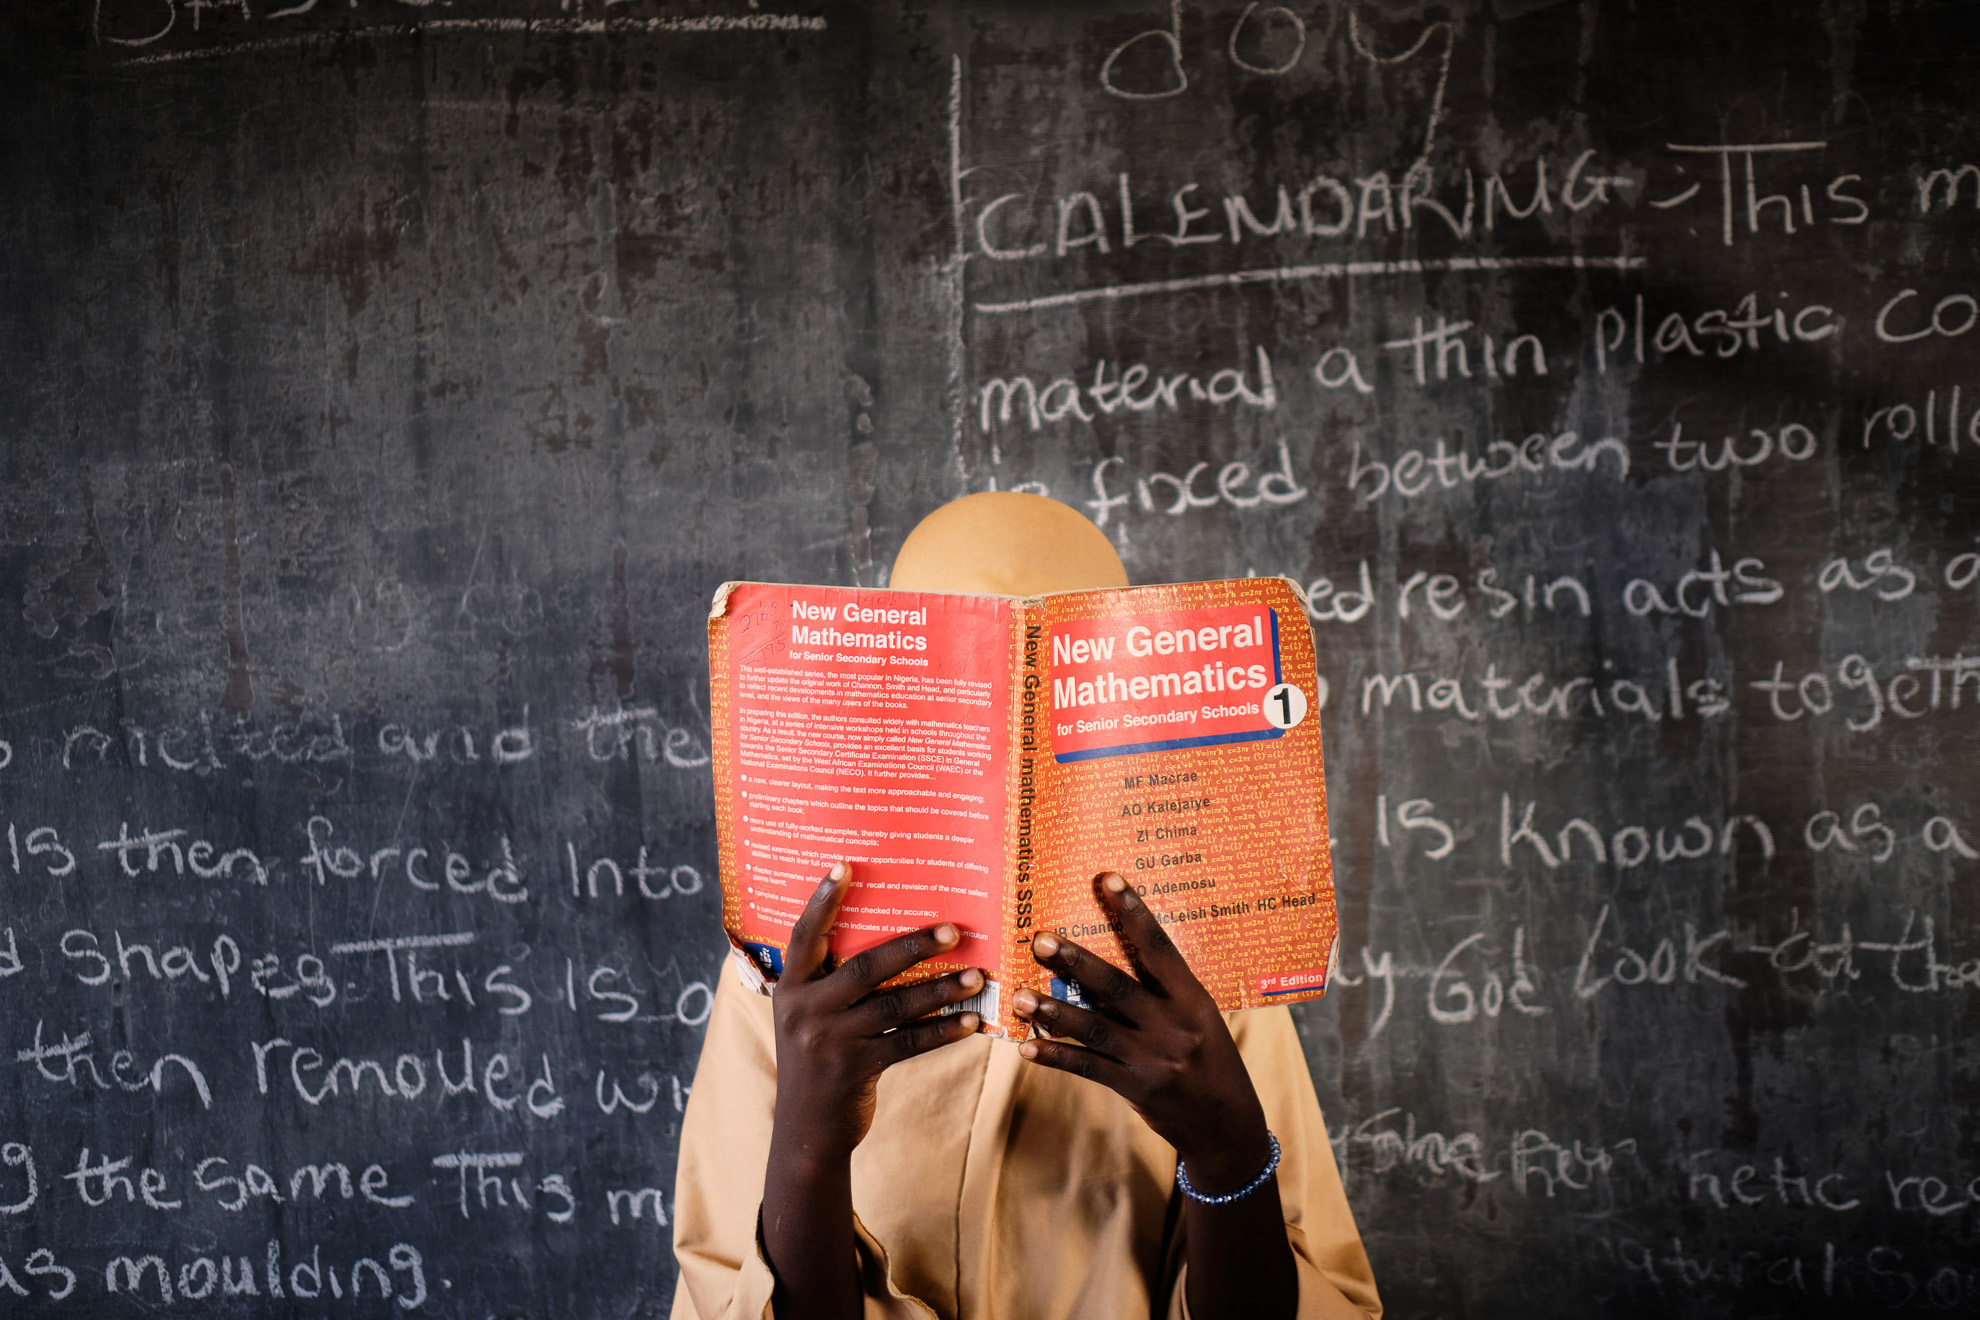 doy
CALENDARING :- This m
material a thin plastic co
is fixced between two rolle
ed resin acts as a
materials togeth
is known as a
y God look at the
netic res
melted and the
is then forced Into
d shapes. This is a
then removed wi
g the same This m
as moulding.
New General
Mathematics
for Senior Secondary Schools
This well-established series, the most popular in Nigeria, has been fully revised
to further update the original work of Channon, Smith and Head, and particularly
to reflect recent developments in mathematics education at senior secondary
level, and the views of the many users of the books.
In preparing this edition, the authors consulted widely with mathematics teachers
in Nigeria, at a series of intensive workshops held in schools throughout the
country. As a result, the new course, now simply called New General Mathematics
for Senior Secondary Schools, provides an excellent basis for students working
towards the Senior Secondary Certificate Examination (SSCE) in General
Mathematics, set by the West African Examinations Council (WAEC) or the
National Examinations Council (NECO). It further provides...
a new, clearer layout, making the text more approachable and engaging;
preliminary chapters which outline the topics that should be covered before
starting each book;
more use of fully-worked examples, thereby giving students a deeper
understanding of mathematical concepts;
revised exercises, which provide greater opportunities for students of differing
abilities to reach their full
chapter summaries which recall and revision of the most salient
points learnt;
complete answers been checked for accuracy;
which indicates at a glance curriculum
topics are
New General mathematics SSS 1
New General
Mathematics
for Senior Secondary Schools 1
MF Macrae
AO Kalejaiye
ZI Chima
GU Garba
O Ademosu
JB Channo McLeish Smith HC Head
3rd Edition